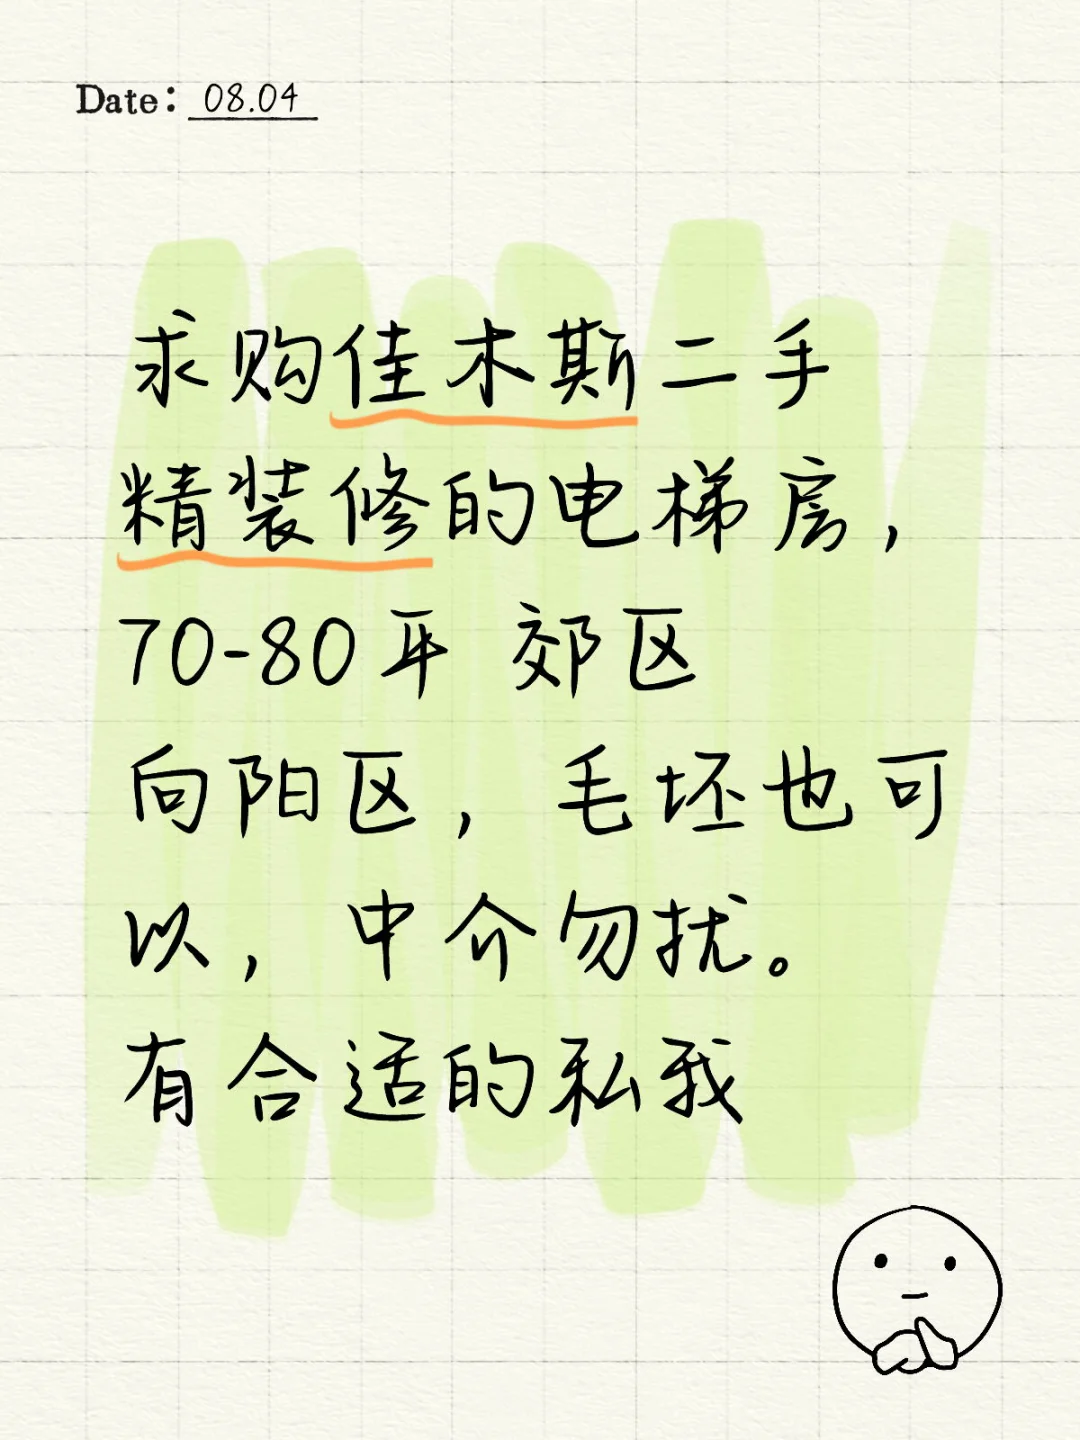 Date: 08.04
求购佳木斯二手
精装修的电梯房，
70-80平 郊区
向阳区，毛坯也可
以，中介勿扰。
有合适的私我